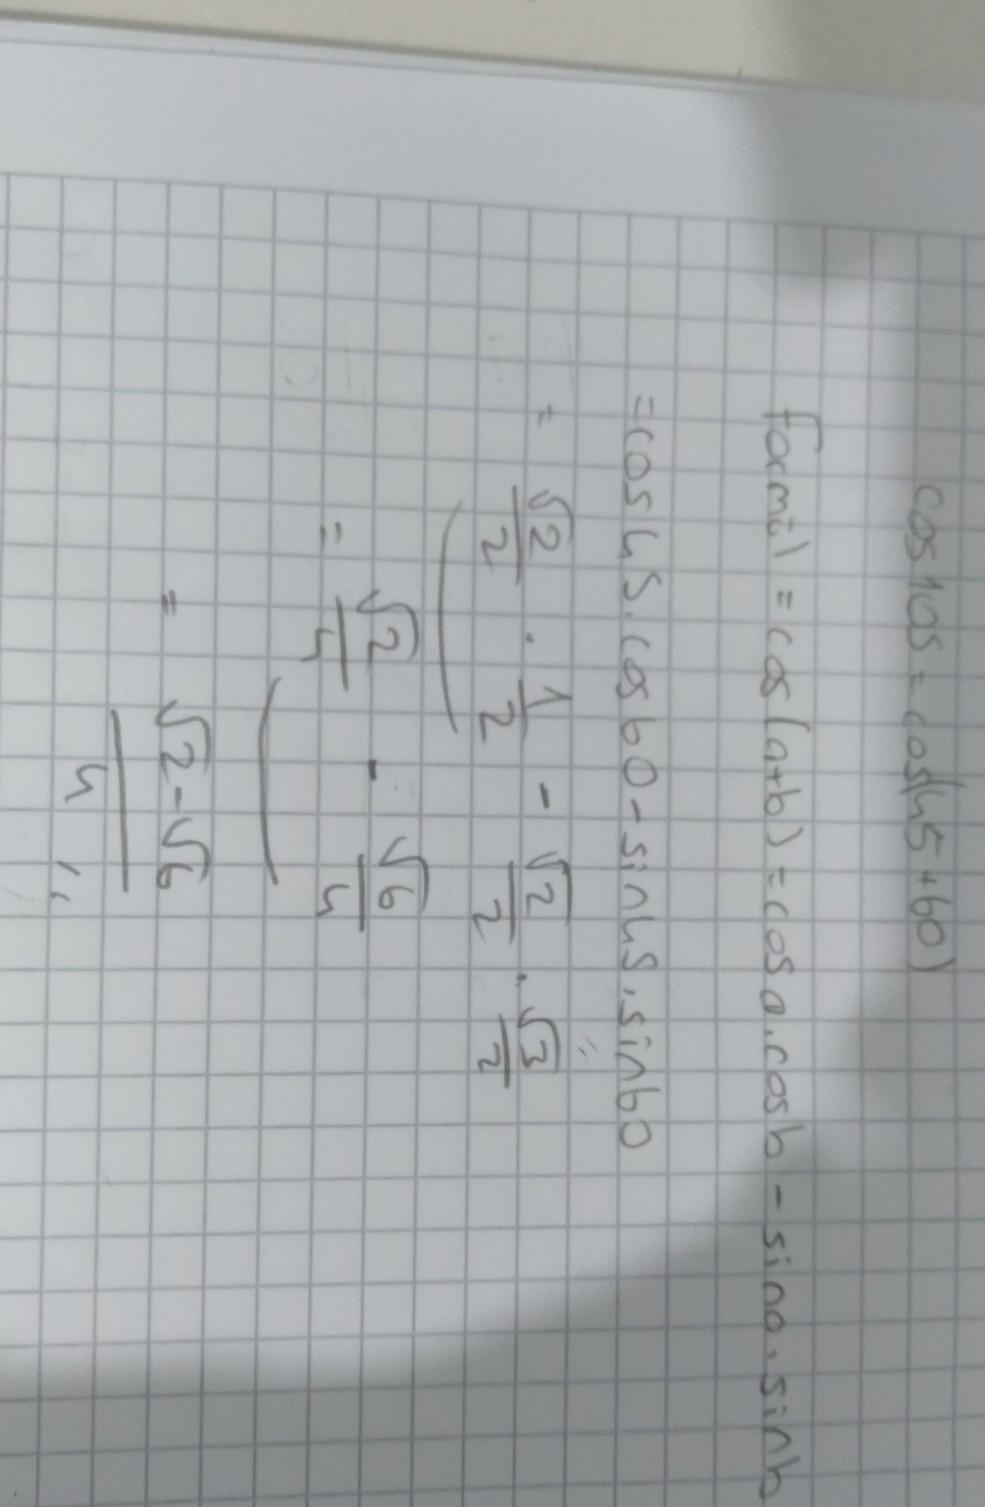 cos105 = cos(45+60)
formül = cos(a+b) = cosa.cosb - sina.sinb
= cos45.cos60 - sin45.sin60
= √2/2 . 1/2 - √2/2 . √3/2
= √2/4 - √6/4
= √2-√6/4 //